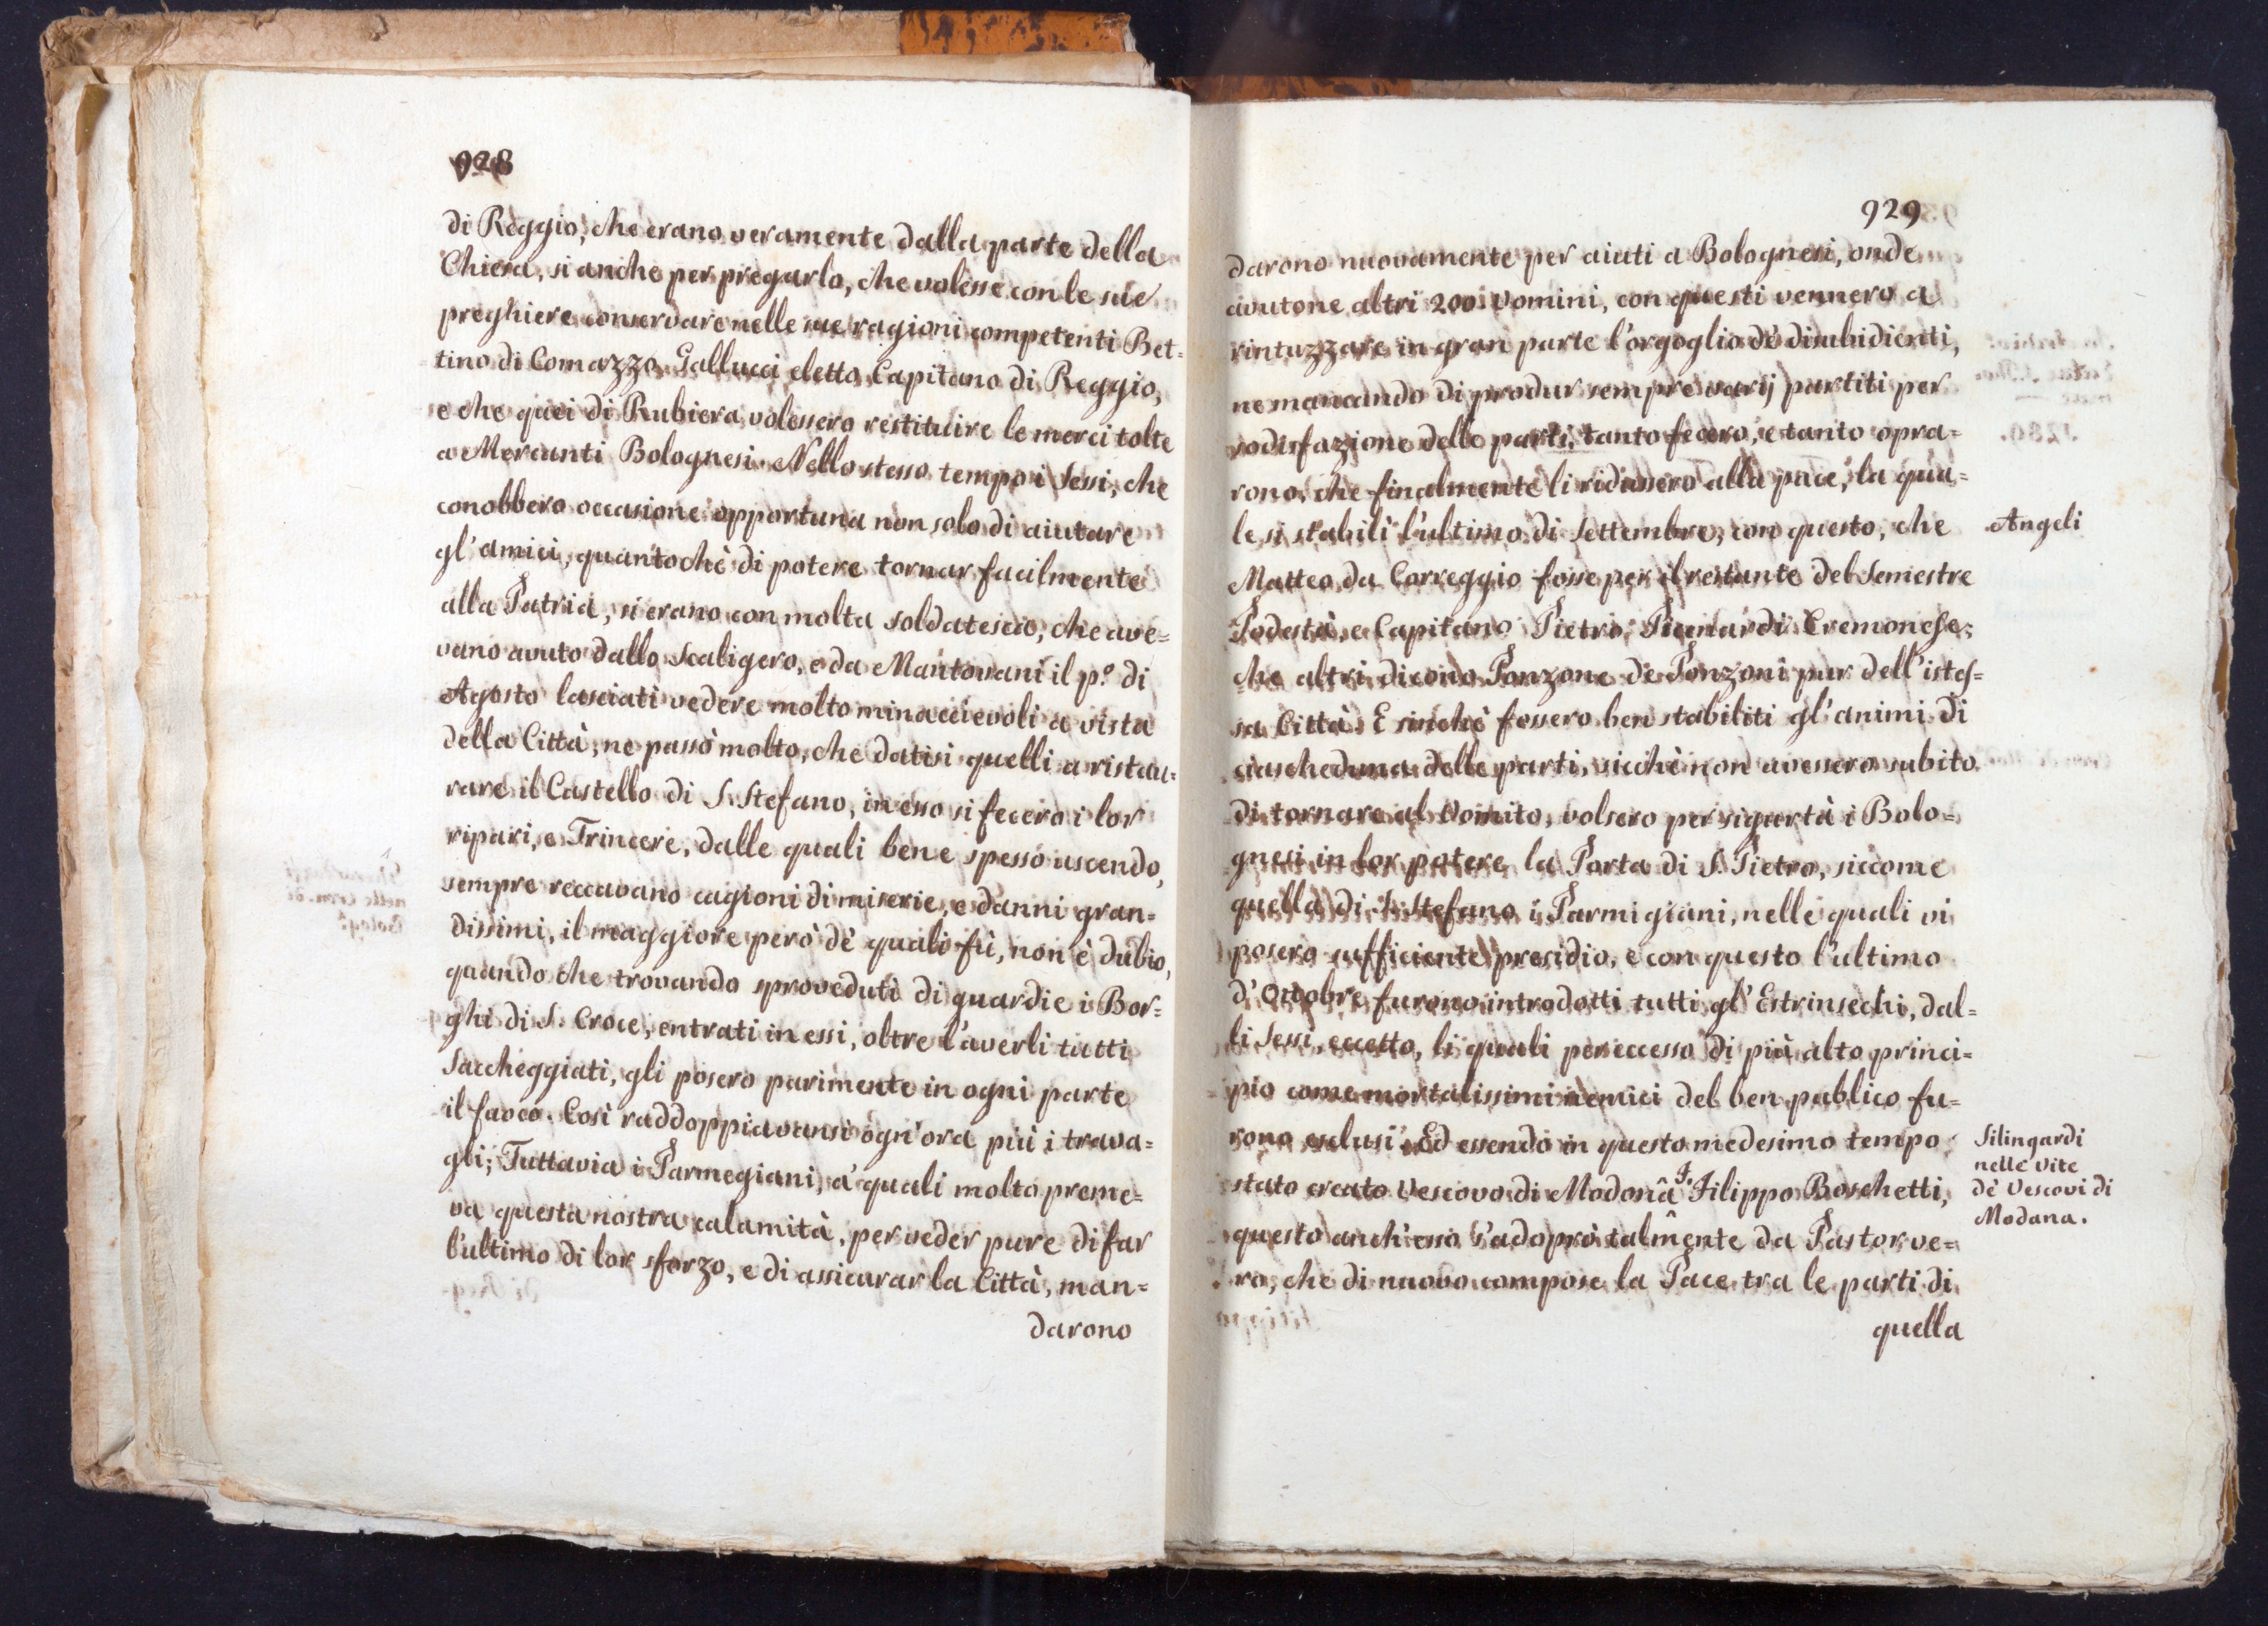 928
di Reggio, che erano veramente dalla parte della
Chiesa, si anche per pregarlo, che volesse con le sue
preghiere conservare nelle sue ragioni competenti Bet=
tino di Comazzo Gallucci eletto Capitano di Reggio,
e che quei di Rubiera volessero restituire le merci tolte
a Mercanti Bolognesi. Nello stesso tempo i Sessi, che
conobbero occasione opportuna non solo di aiutare
gl'amici, quantochè di potere tornar facilmente
alla Patria, si erano con molta soldatesca, che ave=
vano avuto dallo Scaligero, e da Mantovani il p.º di
Agosto lasciati vedere molto minaccievoli a vista
della Città, ne passò molto, che datisi quelli a ristau=
rare il Castello di S. Stefano, in esso si fecero i lor
ripari, e Trincere, dalle quali bene spesso uscendo,
sempre reccavano cagioni di miserie, e danni gran=
dissimi, il maggiore però dè quali fù, non è dubio,
quando che trovando sproveduti di guardie i Bor=
ghi di S. Croce, entrati in essi, oltre l'averli tutti
Saccheggiati, gli posero parimente in ogni parte
il fuoco. Così raddoppiavansi ogn'ora più i trava=
gli; Tuttavia i Parmegiani, a' quali molto preme=
va questa nostra calamità, per veder pure di far
l'ultimo di lor sforzo, e di assicurar la Città, man=
darono
929
darono nuovamente per aiuti a Bolognesi, onde
avutone altri 200 Uomini, con questi vennero a
rintuzzare in gran parte l'orgoglio dè disubidienti,
ne mancando di produr sempre varij partiti per
sodisfazione delle parti, tanto fecero, e tanto opra=
rono, che finalmente li ridussero alla pace, la qua=
le si stabilì l'ultimo di Settembre, con questo, che
Angeli
Matteo da Correggio fosse per il restante del Semestre
Podestà, e Capitano Pietro Picenardi Cremonese,
che altri dicono Ponzone de Ponzoni pur dell'istes=
sa Città. E sinchè fossero ben stabiliti gl'animi di
ciascheduna delle parti, sicchè non avessero subito
di tornare al Vomito, volsero per sigurtà i Bolo=
gnesi in lor potere la Porta di S. Pietro, siccome
quella di S. Stefano i Parmigiani, nelle quali vi
posero sufficiente presidio, e con questo l'ultimo
d'Ottobre furono introdotti tutti gl'Estrinsechi, dal=
li Sessi eccetto, li quali per eccesso di più alto princi=
pio come mortalissimi nemici del ben publico fu=
rono esclusi. Ed essendo in questo medesimo tempo
stato creato Vescovo di Modona F. Filippo Boschetti,
questo anch'esso s'adoprò talmẽnte da Pastor ve=
ro, che di nuovo compose la Pace tra le parti di
Silingardi
nelle Vite
dè Vescovi di
Modana.
quella